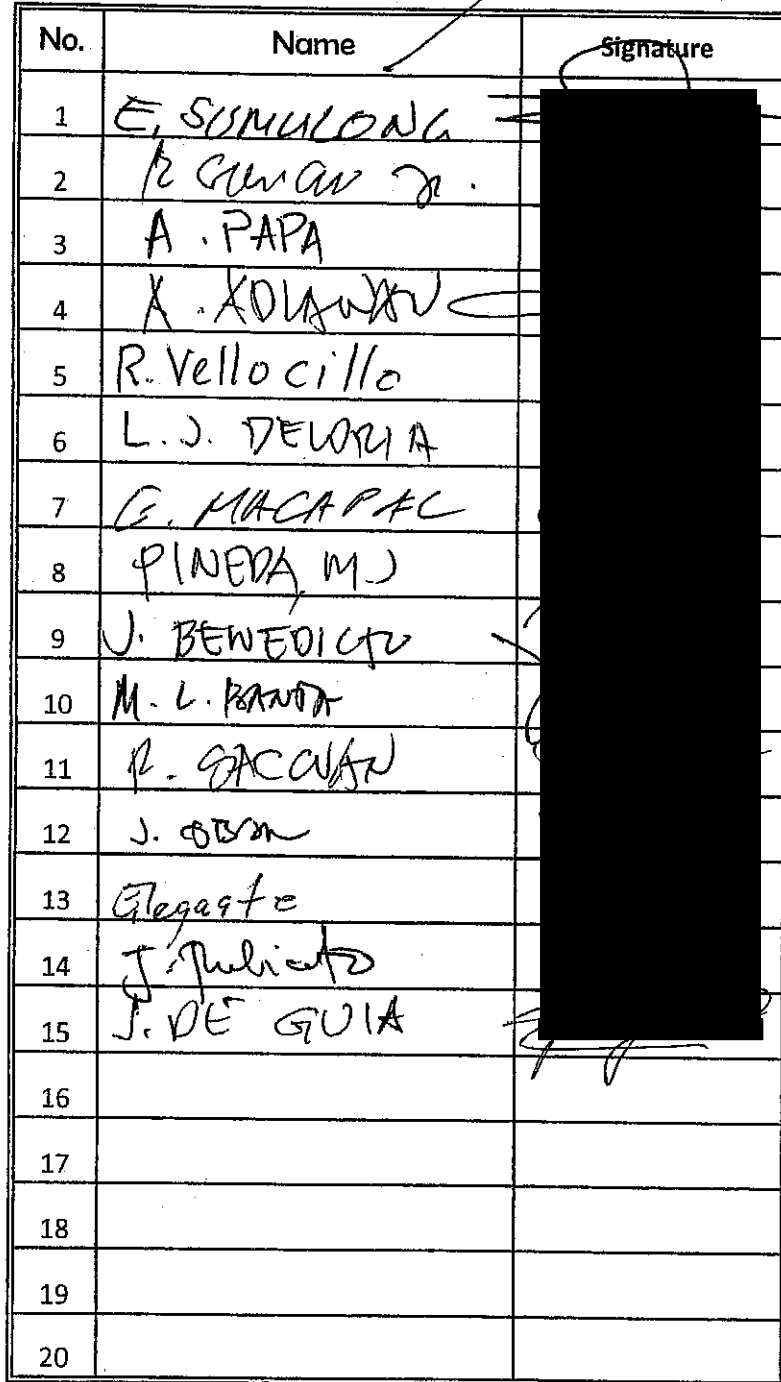 No. Name Signature
1 E. SUMULONG
2 Jr.
3 A. PAPA
4 A. ADLAWAN
5 R. Vellocillo
6 L.J. DELORIA
7 G. MACAPAC
8 PINEDA, M.J
9 J. BENEDICTO
10 M. L. BANTA
11 R. SACAUAN
12 J.
13 Elegaste
14 J.
15 J. DE GUIA
16
17
18
19
20